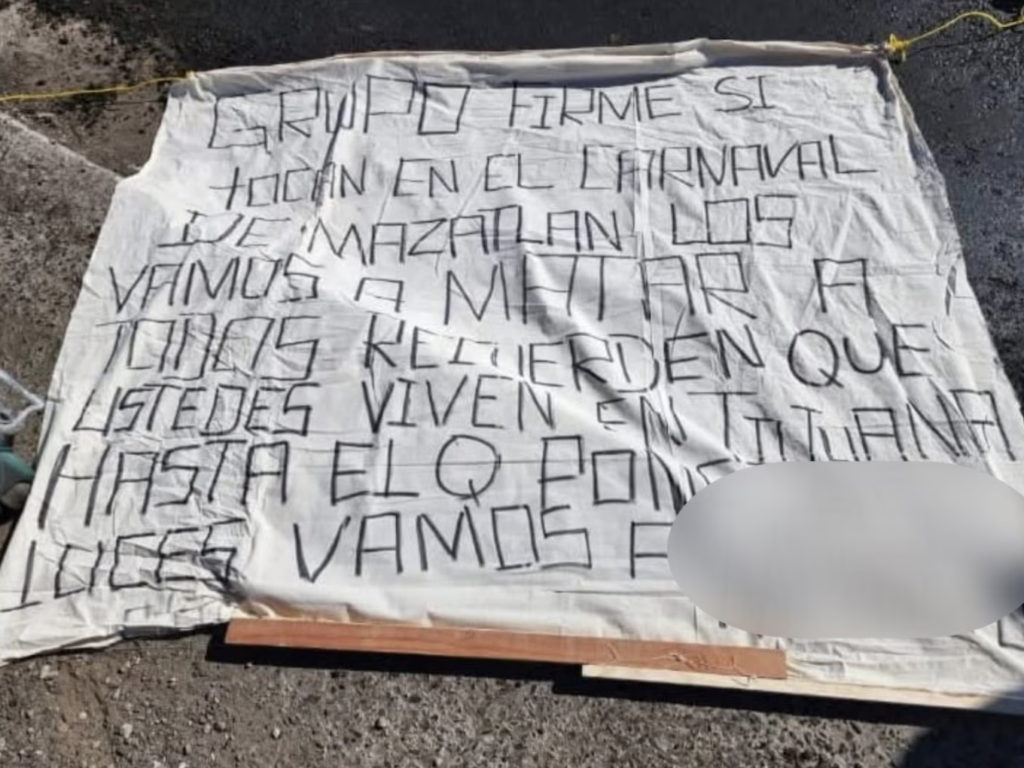 GRUPO FIRME SI
tOCAN EN EL CARNAVAL
DE MAZATLAN LOS
VAMOS A MATAR A
TODOS RECUERDEN QUE
USTEDES VIVEN EN TIJUANA
HASTA EL Q PON
LUCES VAMOS A